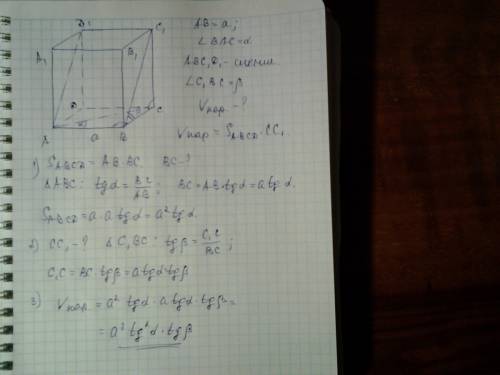 D₁ C₁
A₁ B₁
D C
A a B
AB = a;
∠BAC = α
ABC₁D₁ -
∠C₁BC = β
Vпар - ?
Vпар = S_ABCD · CC₁
1) S_ABCD = AB · BC BC - ?
△ABC: tgα = BC/AB; BC = AB · tgα = a tgα.
S_ABCD = a · a tgα = a² tgα.
2) CC₁ - ? △C₁BC: tgβ = C₁C/BC;
C₁C = BC · tgβ = a tgα tgβ
3) Vпар = a² tgα · a tgα · tgβ =
= a³ tg²α · tgβ